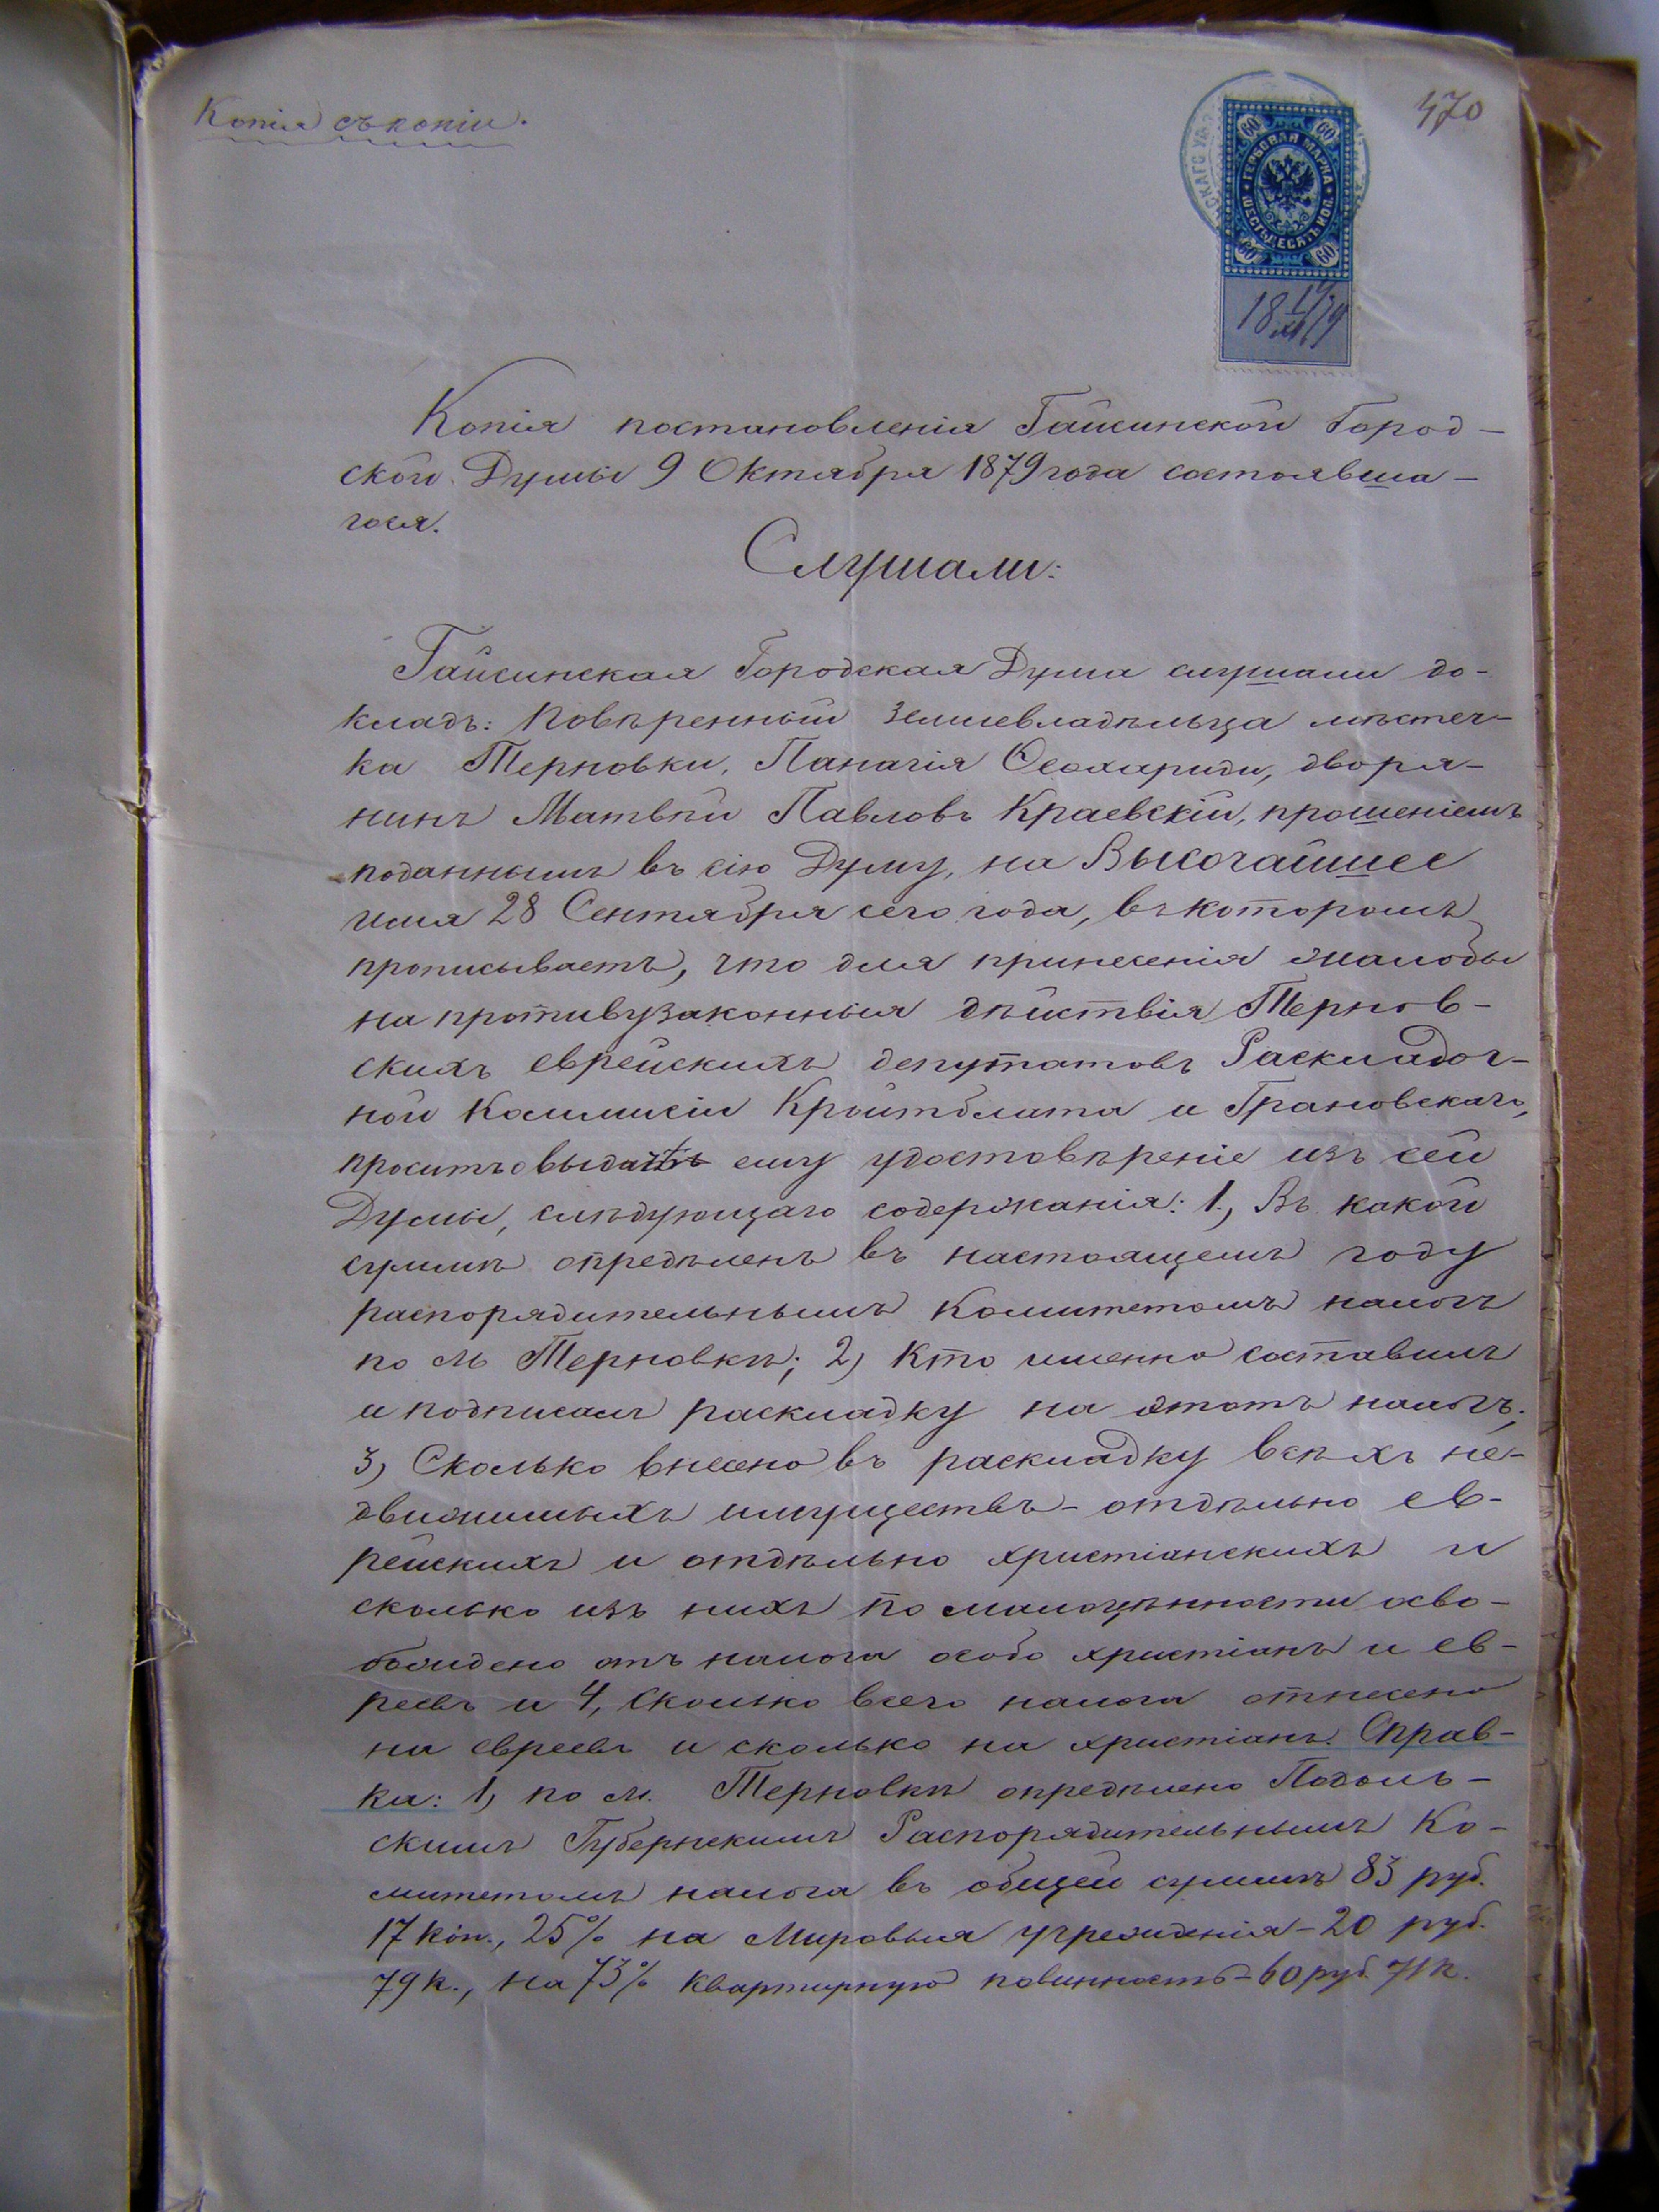 Копія съ копіи.
470
60 60
ГЕРБОВАЯ МАРКА
ШЕСТЬДЕСЯТЪ КОП.
60 60
Копія постановленія Гайсинской Город-
ской Думы 9 Октября 1879 года состоявша-
гося.
Слушали:
Гайсинская Городская Дума слушали до-
кладъ: Повѣренный землевладѣльца мѣстеч-
ка Терновки, Панагія Ѳеохариди, дворя-
нинъ Матвѣй Павловъ Краевскій, прошеніемъ
поданнымъ въ сію Думу, на Высочайшее
имя 28 Сентября сего года, въ которомъ
прописываетъ, что для принесенія жалобы
на противузаконныя дѣйствія Тернов-
скихъ еврейскихъ депутатовъ Раскладоч-
ной Коммисіи Кройтблата и Грановскаго,
проситъ выдать ему удостовѣреніе изъ сей
Думы, слѣдующаго содержанія: 1., Въ какой
суммѣ опредѣленъ въ настоящемъ году
распорядительнымъ Комитетомъ налогъ
по м Терновкѣ; 2) Кто именно составилъ
и подписалъ раскладку на этотъ налогъ;
3) Сколько внесено въ раскладку всѣхъ не-
движимыхъ имуществъ - отдѣльно ев-
рейскихъ и отдѣльно христіанскихъ и
сколько изъ нихъ по малоцѣнности осво-
бождено отъ налога особо христіанъ и ев-
реевъ и 4, Сколько всего налога отнесено
на евреевъ и сколько на христіанъ. Справ-
ка: 1) по м. Терновкѣ опредѣлено Подоль-
скимъ Губернскимъ Распорядительнымъ Ко-
митетомъ налога въ общей суммѣ 83 руб.
17 коп., 25% на Мировыя учрежденія - 20 руб.
79 к., на 73% квартирную повинность - 60 руб. 71 к.